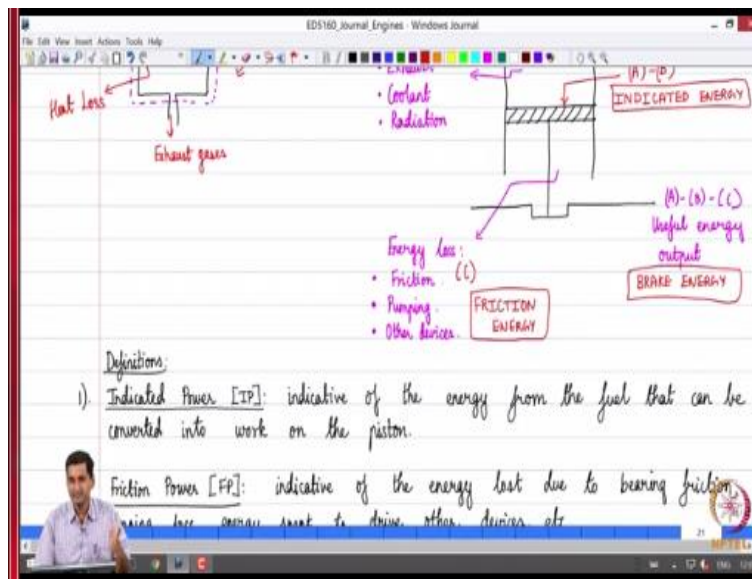 ED5160_Journal_Engines - Windows Journal
File Edit View Insert Actions Tools Help
Heat Loss
Exhaust gases
• Exhaust
• Coolant
• Radiation
INDICATED ENERGY
(A)-(B)-(C)
Useful energy
output
BRAKE ENERGY
Energy loss:
• Friction (C)
• Pumping
• Other devices.
FRICTION
ENERGY
Definitions:
1). Indicated Power [IP]: indicative of the energy from the fuel that can be
converted into work on the piston.
Friction Power [FP]: indicative of the energy lost due to bearing friction,
loss, energy spent to drive other devices etc
21
NPTEL